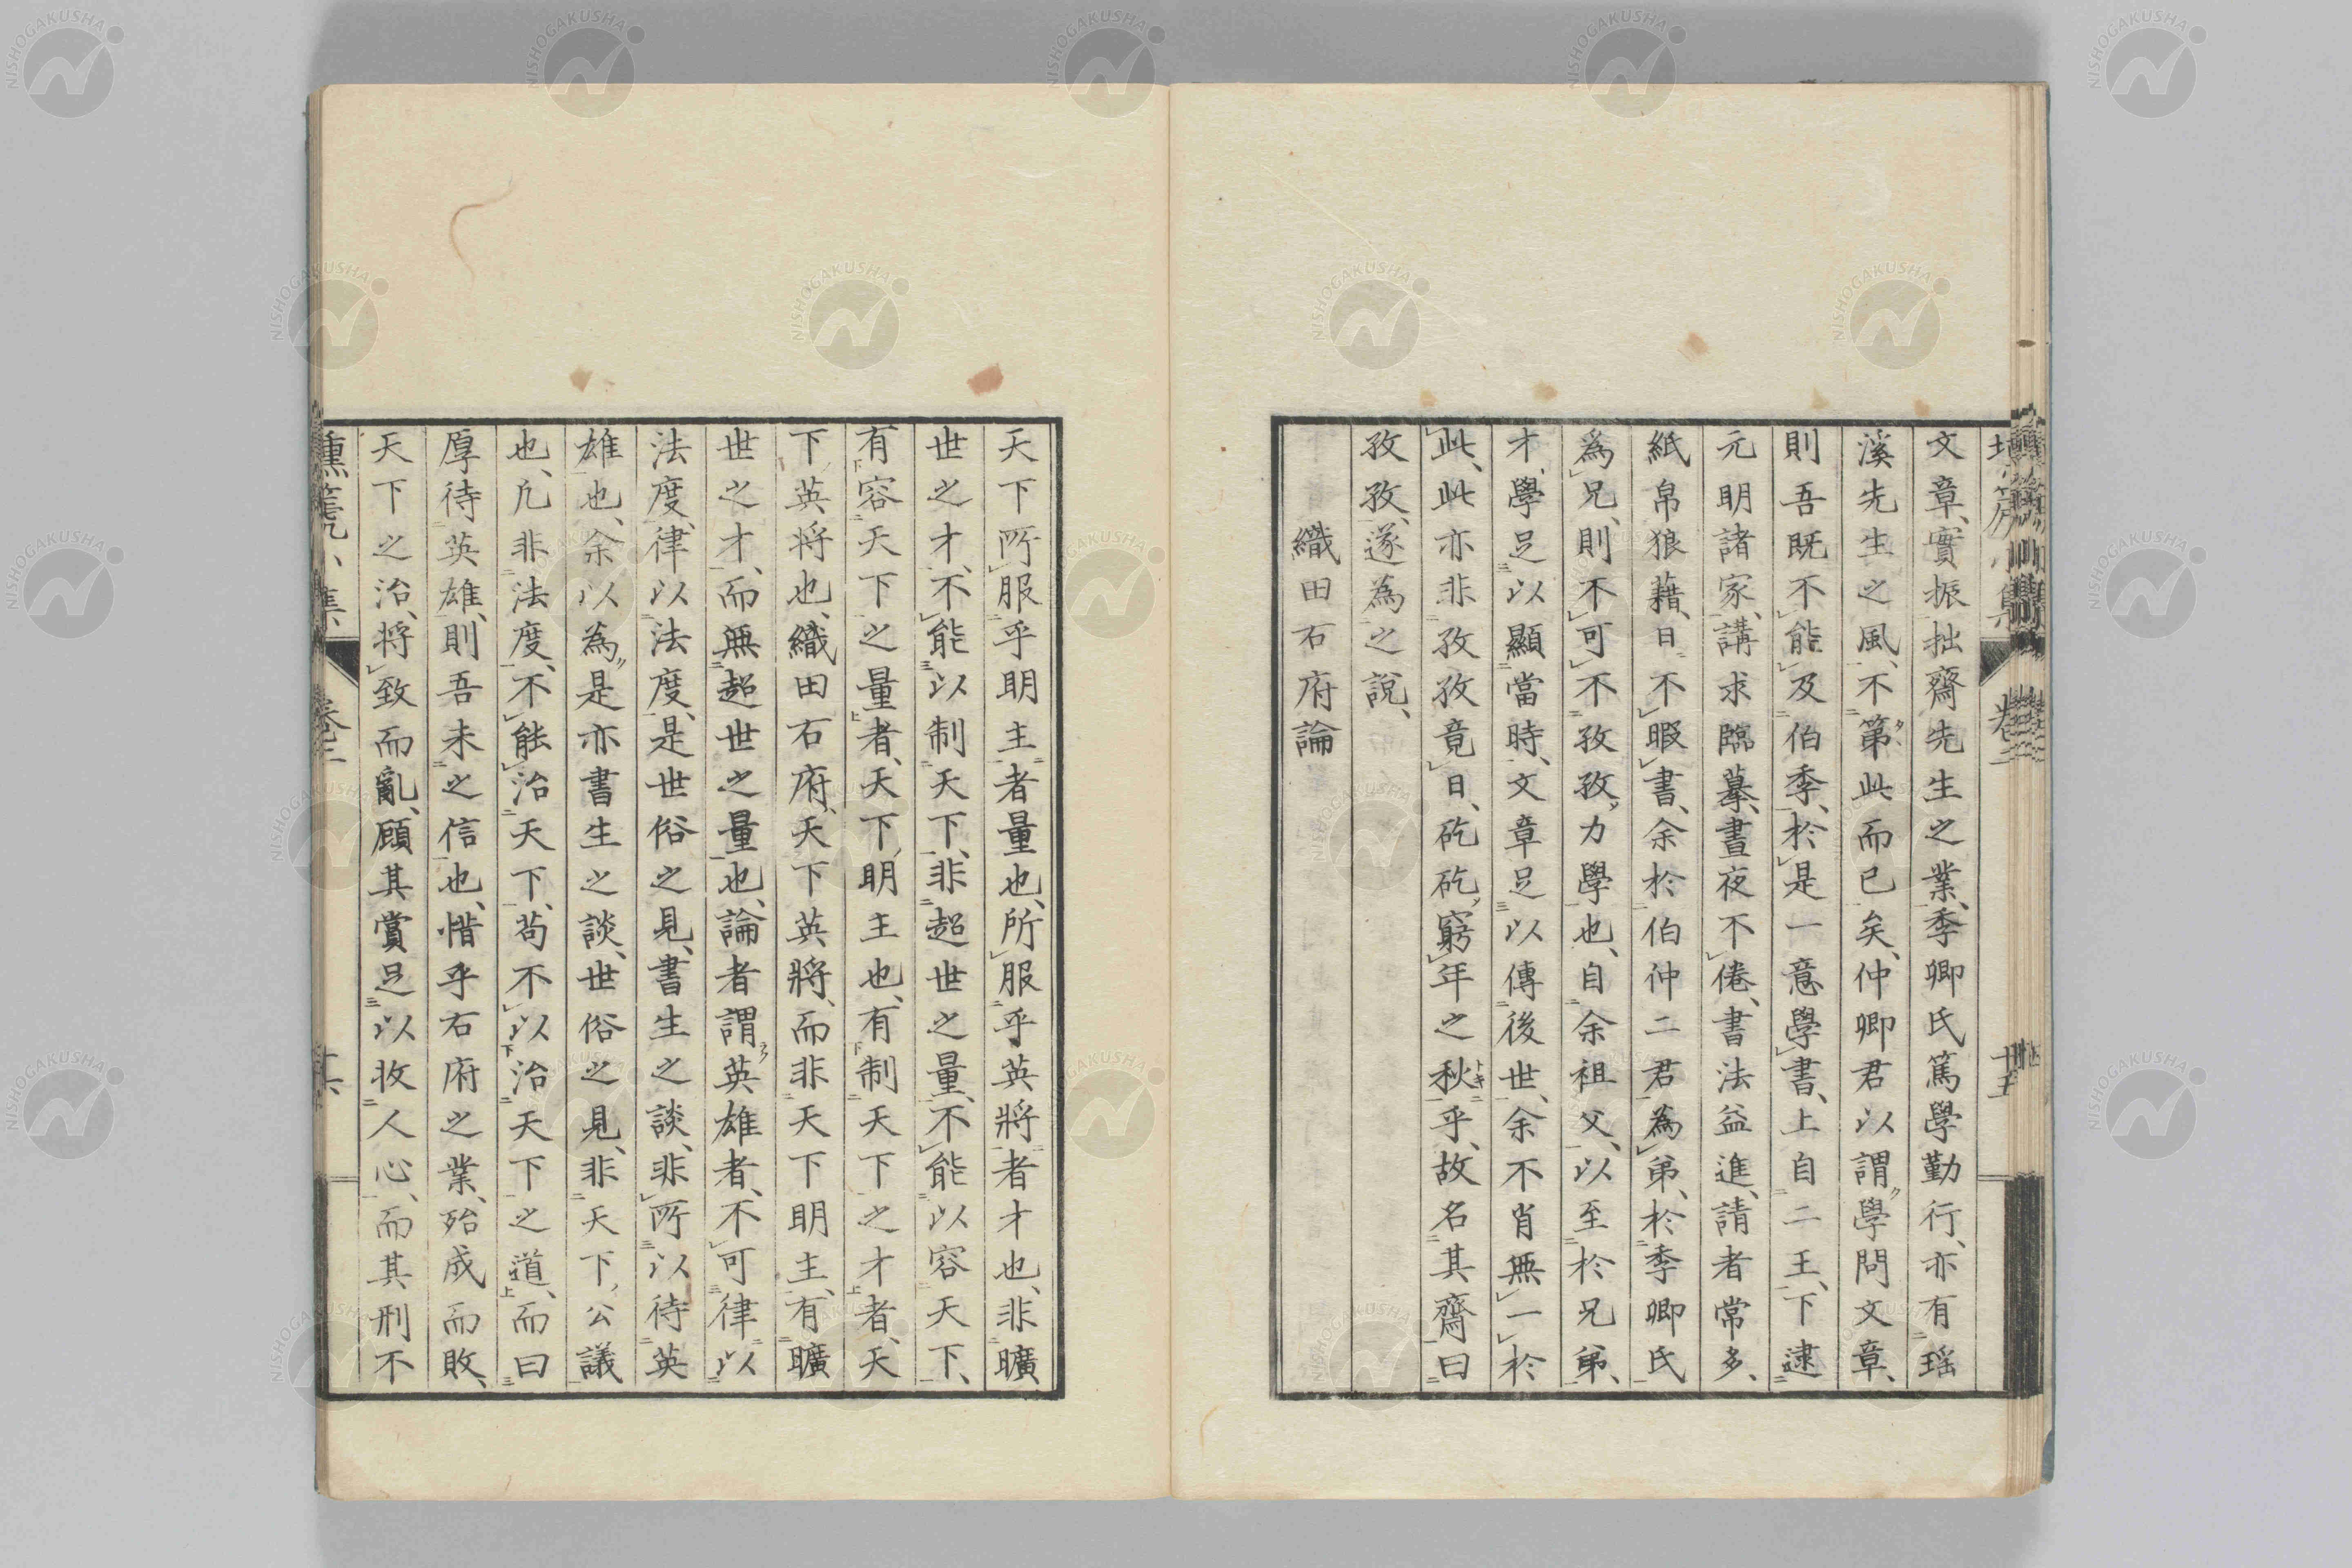 文章、實振拙齋先生之業、季卿氏篤學勤行、亦有瑶
溪先生之風、不第此而已矣、仲卿君以謂學問文章、
則吾既不能及伯季、於是一意學書、上自二王、下逮
元明諸家、講求臨摹、晝夜不倦、書法益進、請者常多、
紙帛狼藉、日不暇書、余於伯仲二君為弟、於季卿氏
為兄、則不可不孜孜力學也、自余祖父、以至於兄弟、
才學足以顯當時、文章足以傳後世、余不肖無一於
此、此亦非孜孜竟日、矻矻窮年之秋乎、故名其齋曰
孜孜、遂為之說、
織田右府論
天下所服乎明主者量也、所服乎英將者才也、非曠
世之才、不能以制天下、非超世之量、不能以容天下、
有容天下之量者、天下明主也、有制天下之才者、天
下英将也、織田右府、天下英將、而非天下明主、有曠
世之才、而無超世之量也、論者謂英雄者、不可律以
法度、律以法度、是世俗之見、書生之談、非所以待英
雄也、余以為是亦書生之談、世俗之見、非天下公議
也、凡非法度、不能治天下、苟不以治天下之道、而曰
厚待英雄、則吾未之信也、惜乎右府之業、殆成而敗、
天下之治、将致而亂、顧其賞足以收人心、而其刑不
卷二
NISHOGAKUSHA